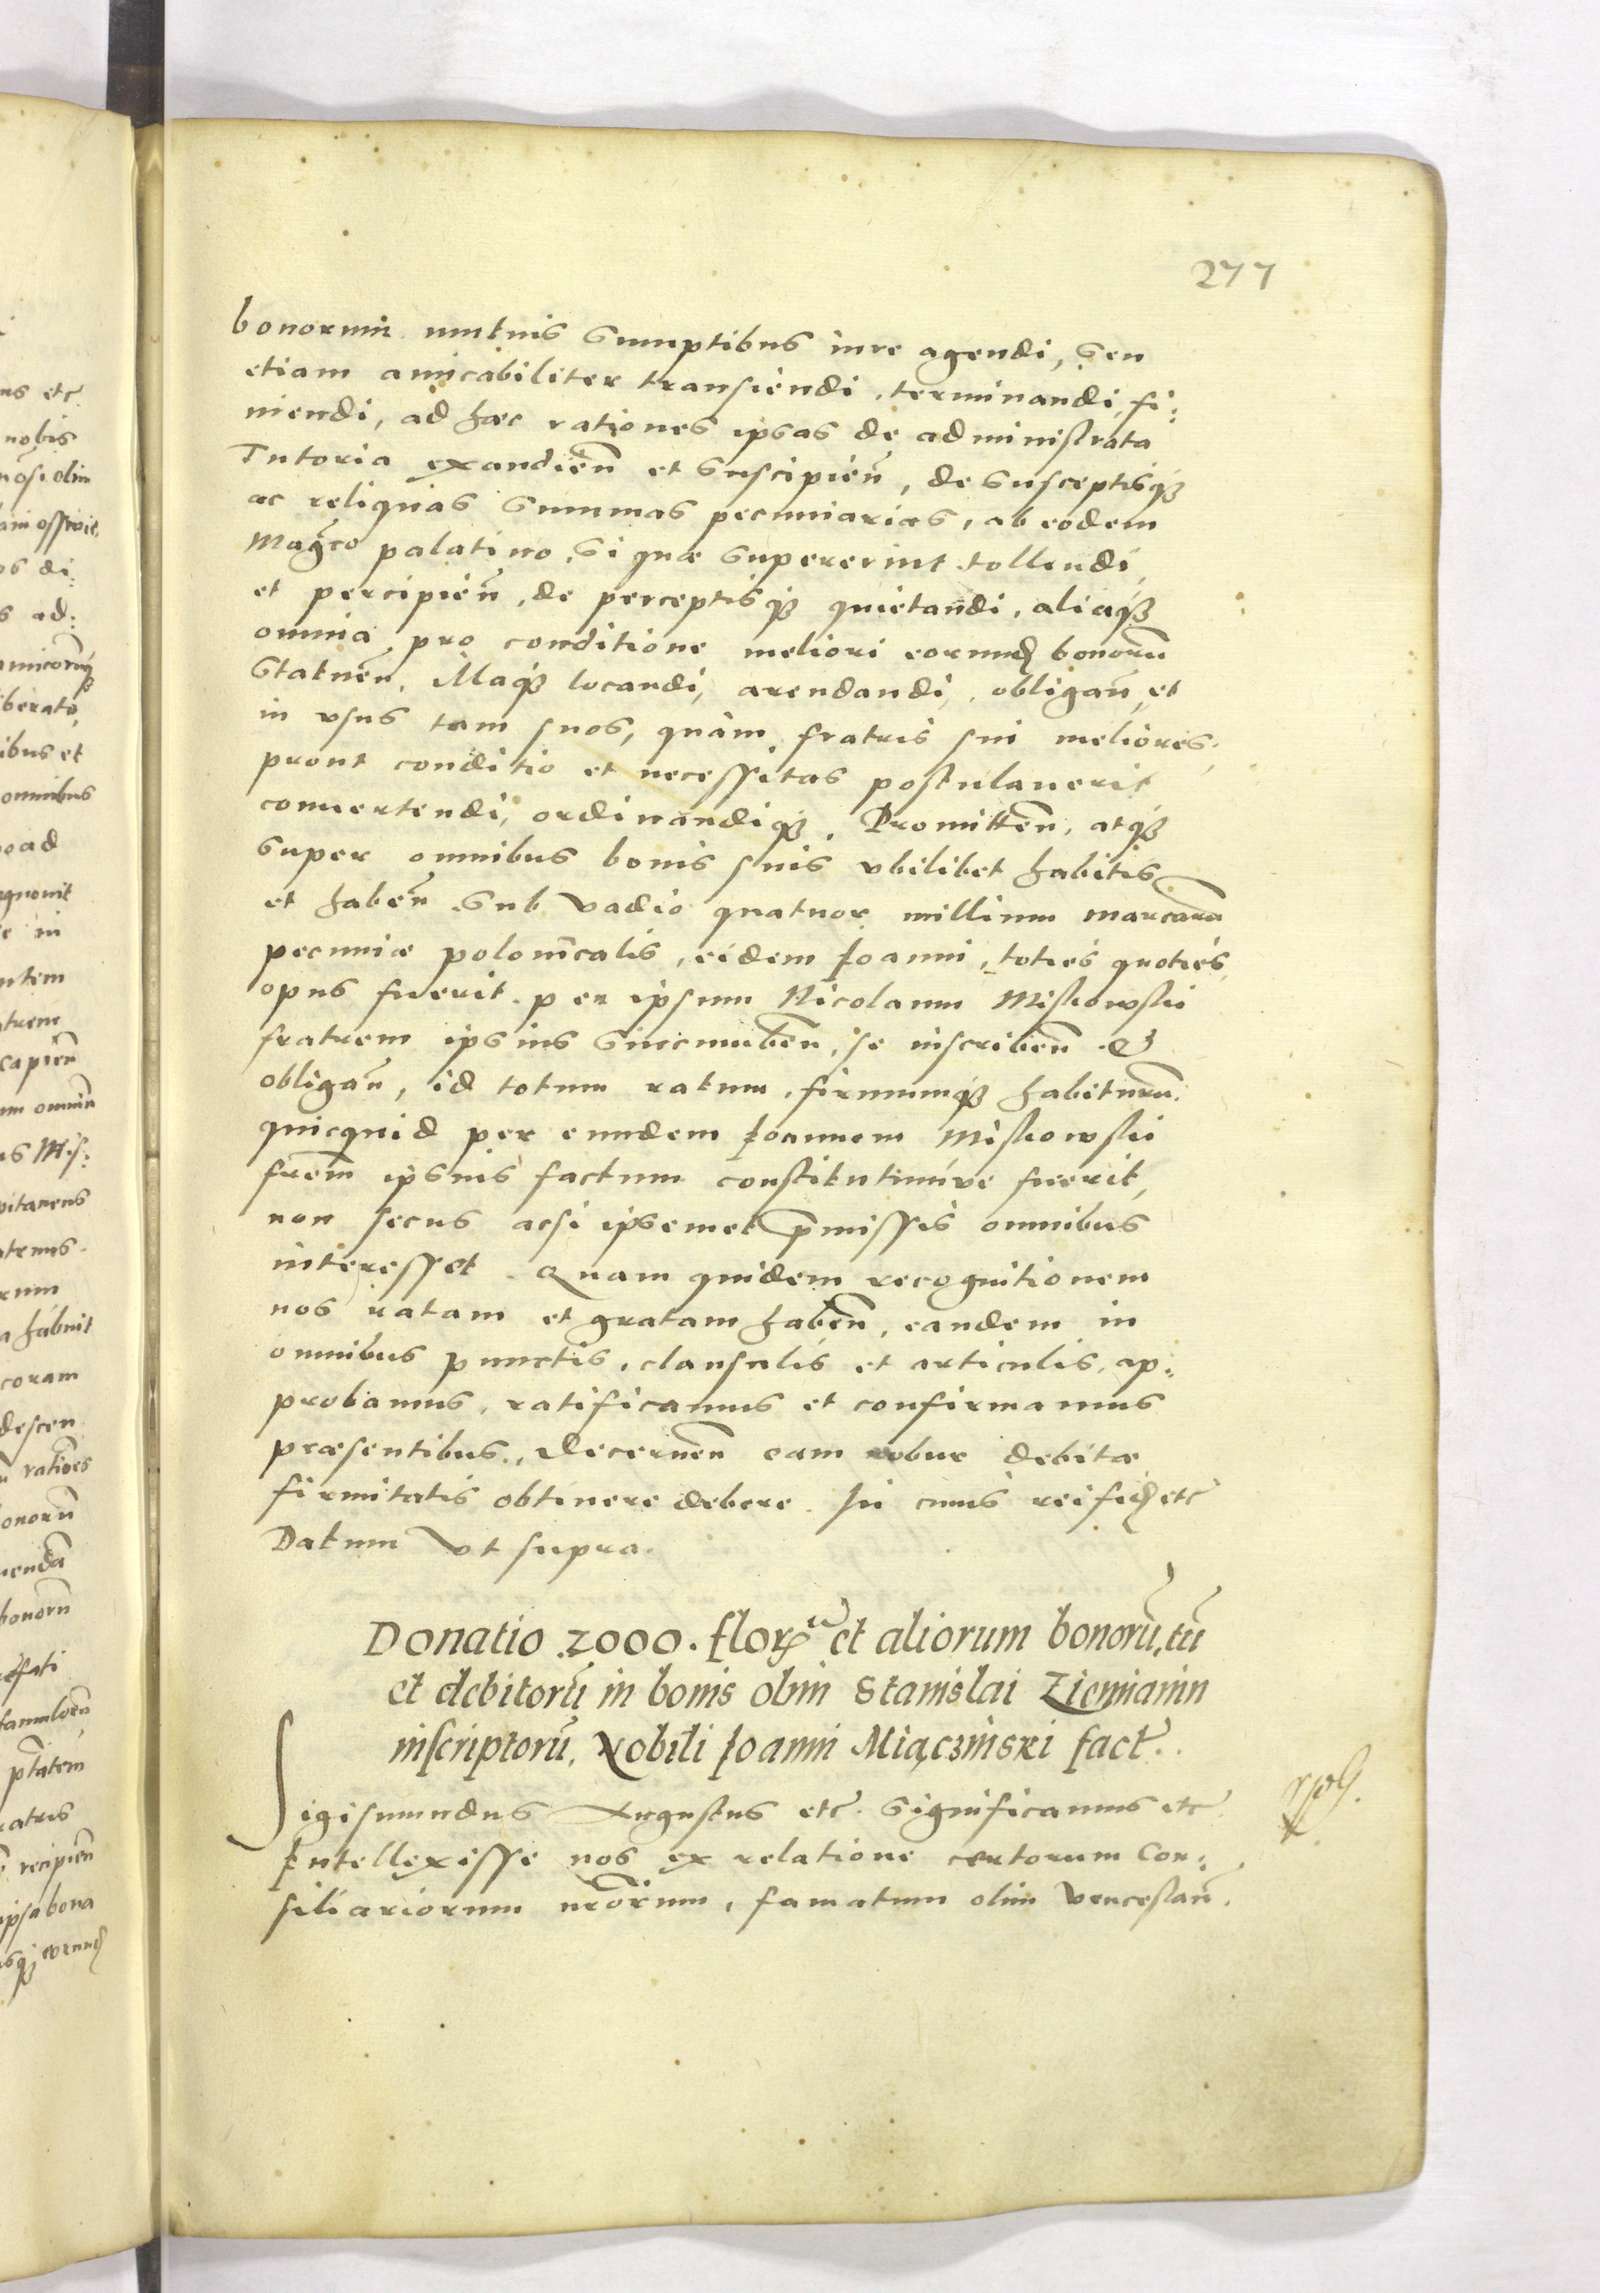 277
bonorum mutuis sumptibus iure agendi, seu
etiam amicabiliter transiendi, terminandi, fi:
niendi, ad hæc rationes ipsas de administrata
Tutoria exaudień et suscipień, de susceptisq̃
ac reliquas summas pecuniarias, ab eodem
Magc̃o palatino, si quæ supererint tollendi,
et percipień, de perceptisq̃ quietandi, aliaq̃
omnia pro conditione meliori eorund̃ bonorũ
statueñ, Illaq̃ locandi, arendandi, obligañ, et
in vsus tam suos, quàm fratris sui meliores,
prout conditio et necessitas postulauerit
conuertendi, ordinandiq̃. Promitteñ, atq̃
super omnibus bonis suis vbilibet habitis
et habeñ sub vadio quatuor millium marcarũ
pecuniæ polonicalis, eidem Ioanni, toties quoties
opus fuerit per ipsum Nicolaum Miskowski
fratrem ipsius succumbeñ, se inscribeñ &
obligañ, id totum ratum, firmumq̃ habiturũ.
quicquid per eundem Ioannem Miskowski
frẽm ipsius factum constitutumve fuerit,
non secus acsi ipsemet p̃missis omnibus
interesset. Quam quidem recognitionem
nos ratam et gratam habeñ, eandem in
omnibus punctis, clausulis et articulis, ap:
probamus, ratificamus et confirmamus
præsentibus, Decerneñ eam robur debitæ
firmitatis obtinere debere. In cuius rei fid̃ etc
Datum vt supra.
Donatio 2000. florẽ et aliorum bonorũ, tũ
et debitorũ in bonis olim Stanislai Ziemianin
inscriptorũ, Nobili Ioanni Miączinski fact.
Sigismundus Augustus etc. Significamus etc
Intellexisse nos ex relatione certorum Con:
siliariorum nr̃orum, famatum olim Venceslaũ.
ns etc
nobis
ibus et
omnibus
coram
descen
ipsa bona